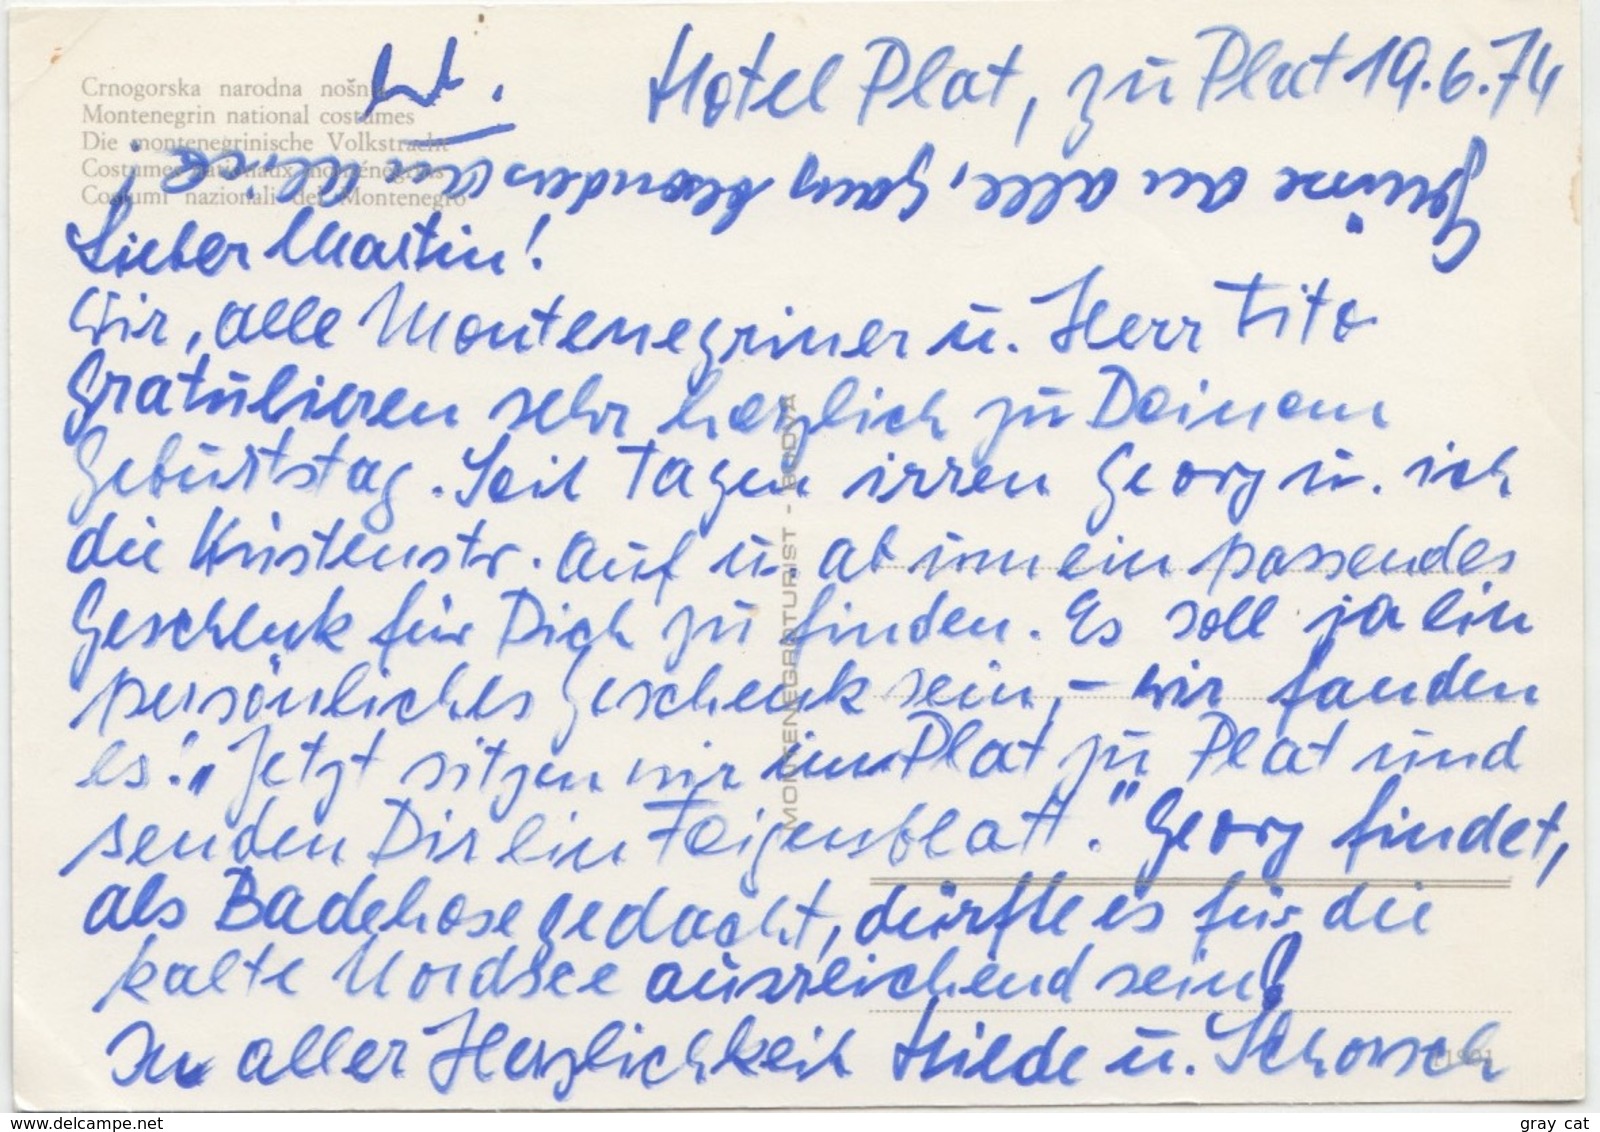 Crnogorska narodna nošnja
Montenegrin national costumes
Die montenegrinische Volkstracht
Costumes nationaux monténégrins
Costumi nazionali del Montenegro
Hotel Plat, zu Plat 19.6.74
Grüsse an alle, ganz besonders an
Lieber Martin!
Wir, alle Montenegriner u. Herr Tito
gratulieren sehr herzlich zu Deinem
Geburtstag. Seit Tagen irren Georg u. ich
die Küstenstr. auf u. ab um ein passendes
Geschenk für Dich zu finden. Es soll ja ein
persönliches Geschenk sein, - wir fanden
es: „Jetzt sitzen wir im Plat zu Plat und
senden Dir ein Feigenblatt." Georg findet,
als Badehose gedacht, dürfte es für die
kalte Nordsee ausreichend sein!
In aller Herzlichkeit Hilde u. Schorsch
MONTENEGROTURIST - BUDVA
www.delcampe.net
gray_cat